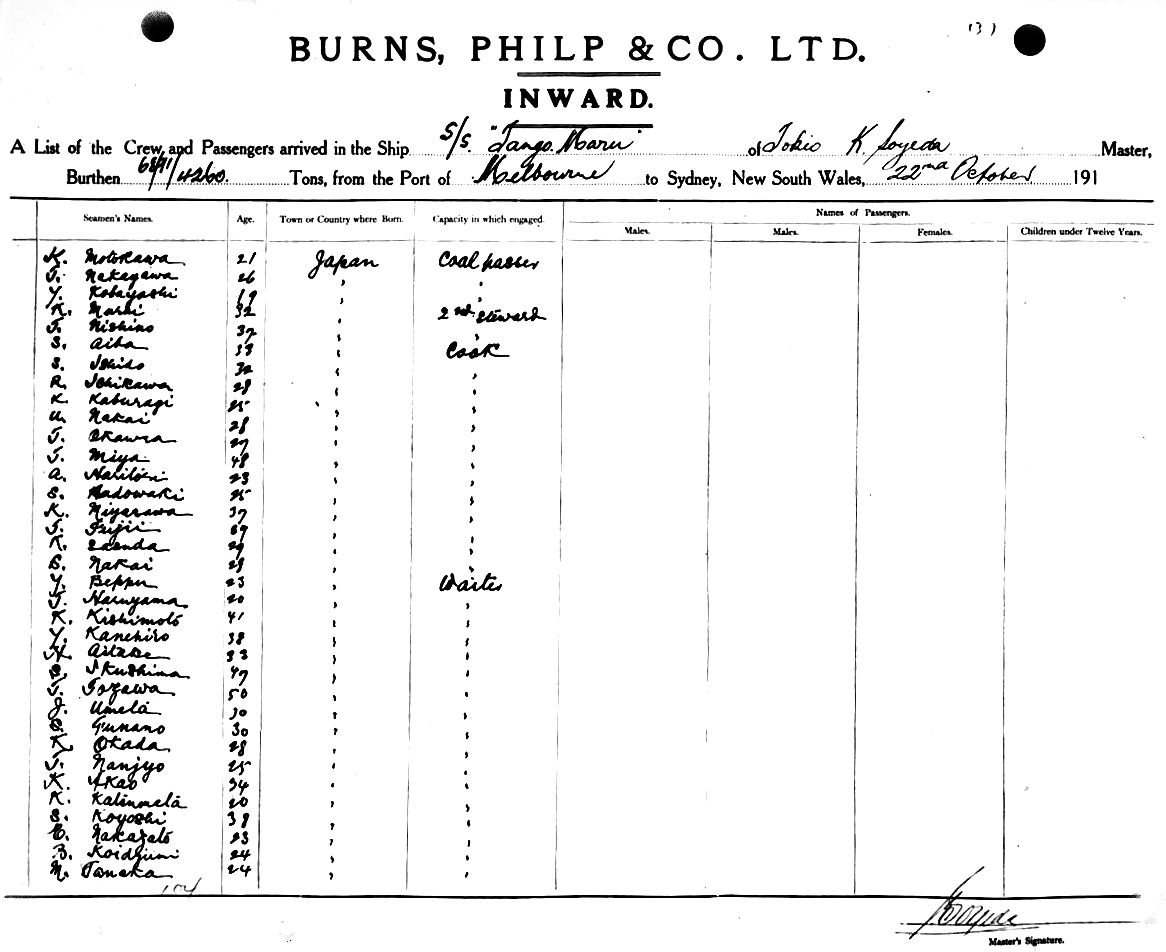 (3)
BURNS, PHILP & CO. LTD.
INWARD.
A List of the Crew and Passengers arrived in the Ship S/S. "Tango Maru" of Tokio K. Soyeda Master,
Burthen 6891/4260. Tons, from the Port of Melbourne to Sydney, New South Wales, 22nd October 191
Names of Passengers.
Seamen's Names. Age. Town or Country where Born. Capacity in which engaged. Males. Males. Females. Children under Twelve Years.
K. Motokawa 21 Japan Coal passer
T. Nakagawa 26 " "
Y. Kobayashi 19 " "
K. 32 " 2nd Steward
T. Nishino 37 " "
S. Aiba 38 " Cook
S. 32 " "
R. Ichikawa 28 " "
K. Kaburagi 25 " "
U. Nakai 28 " "
T. Okawra 27 " "
T. Miya 48 " "
A. 23 " "
S. Kadowaki 25 " "
K. 37 " "
T. Fujii " "
K. 29 " "
S. Nakai 28 " "
Y. Beppu 23 " Waiter
T. Naruyama 20 " "
K. Kishimoto 41 " "
Y. Kanehiro 38 " "
H. 33 " "
S. Ikushima 47 " "
T. Tozawa 50 " "
J. Umeta 30 " "
S. Funano 30 " "
K. Okada 28 " "
T. Nanjyo 25 " "
K. Akao 34 " "
K. Katinmeta 20 " "
S. Koyoshi 38 " "
E. Nakazato 23 " "
B. Koidzumi 24 " "
M. Tanaka 24 " "
104
K. Soyeda
Master's Signature.